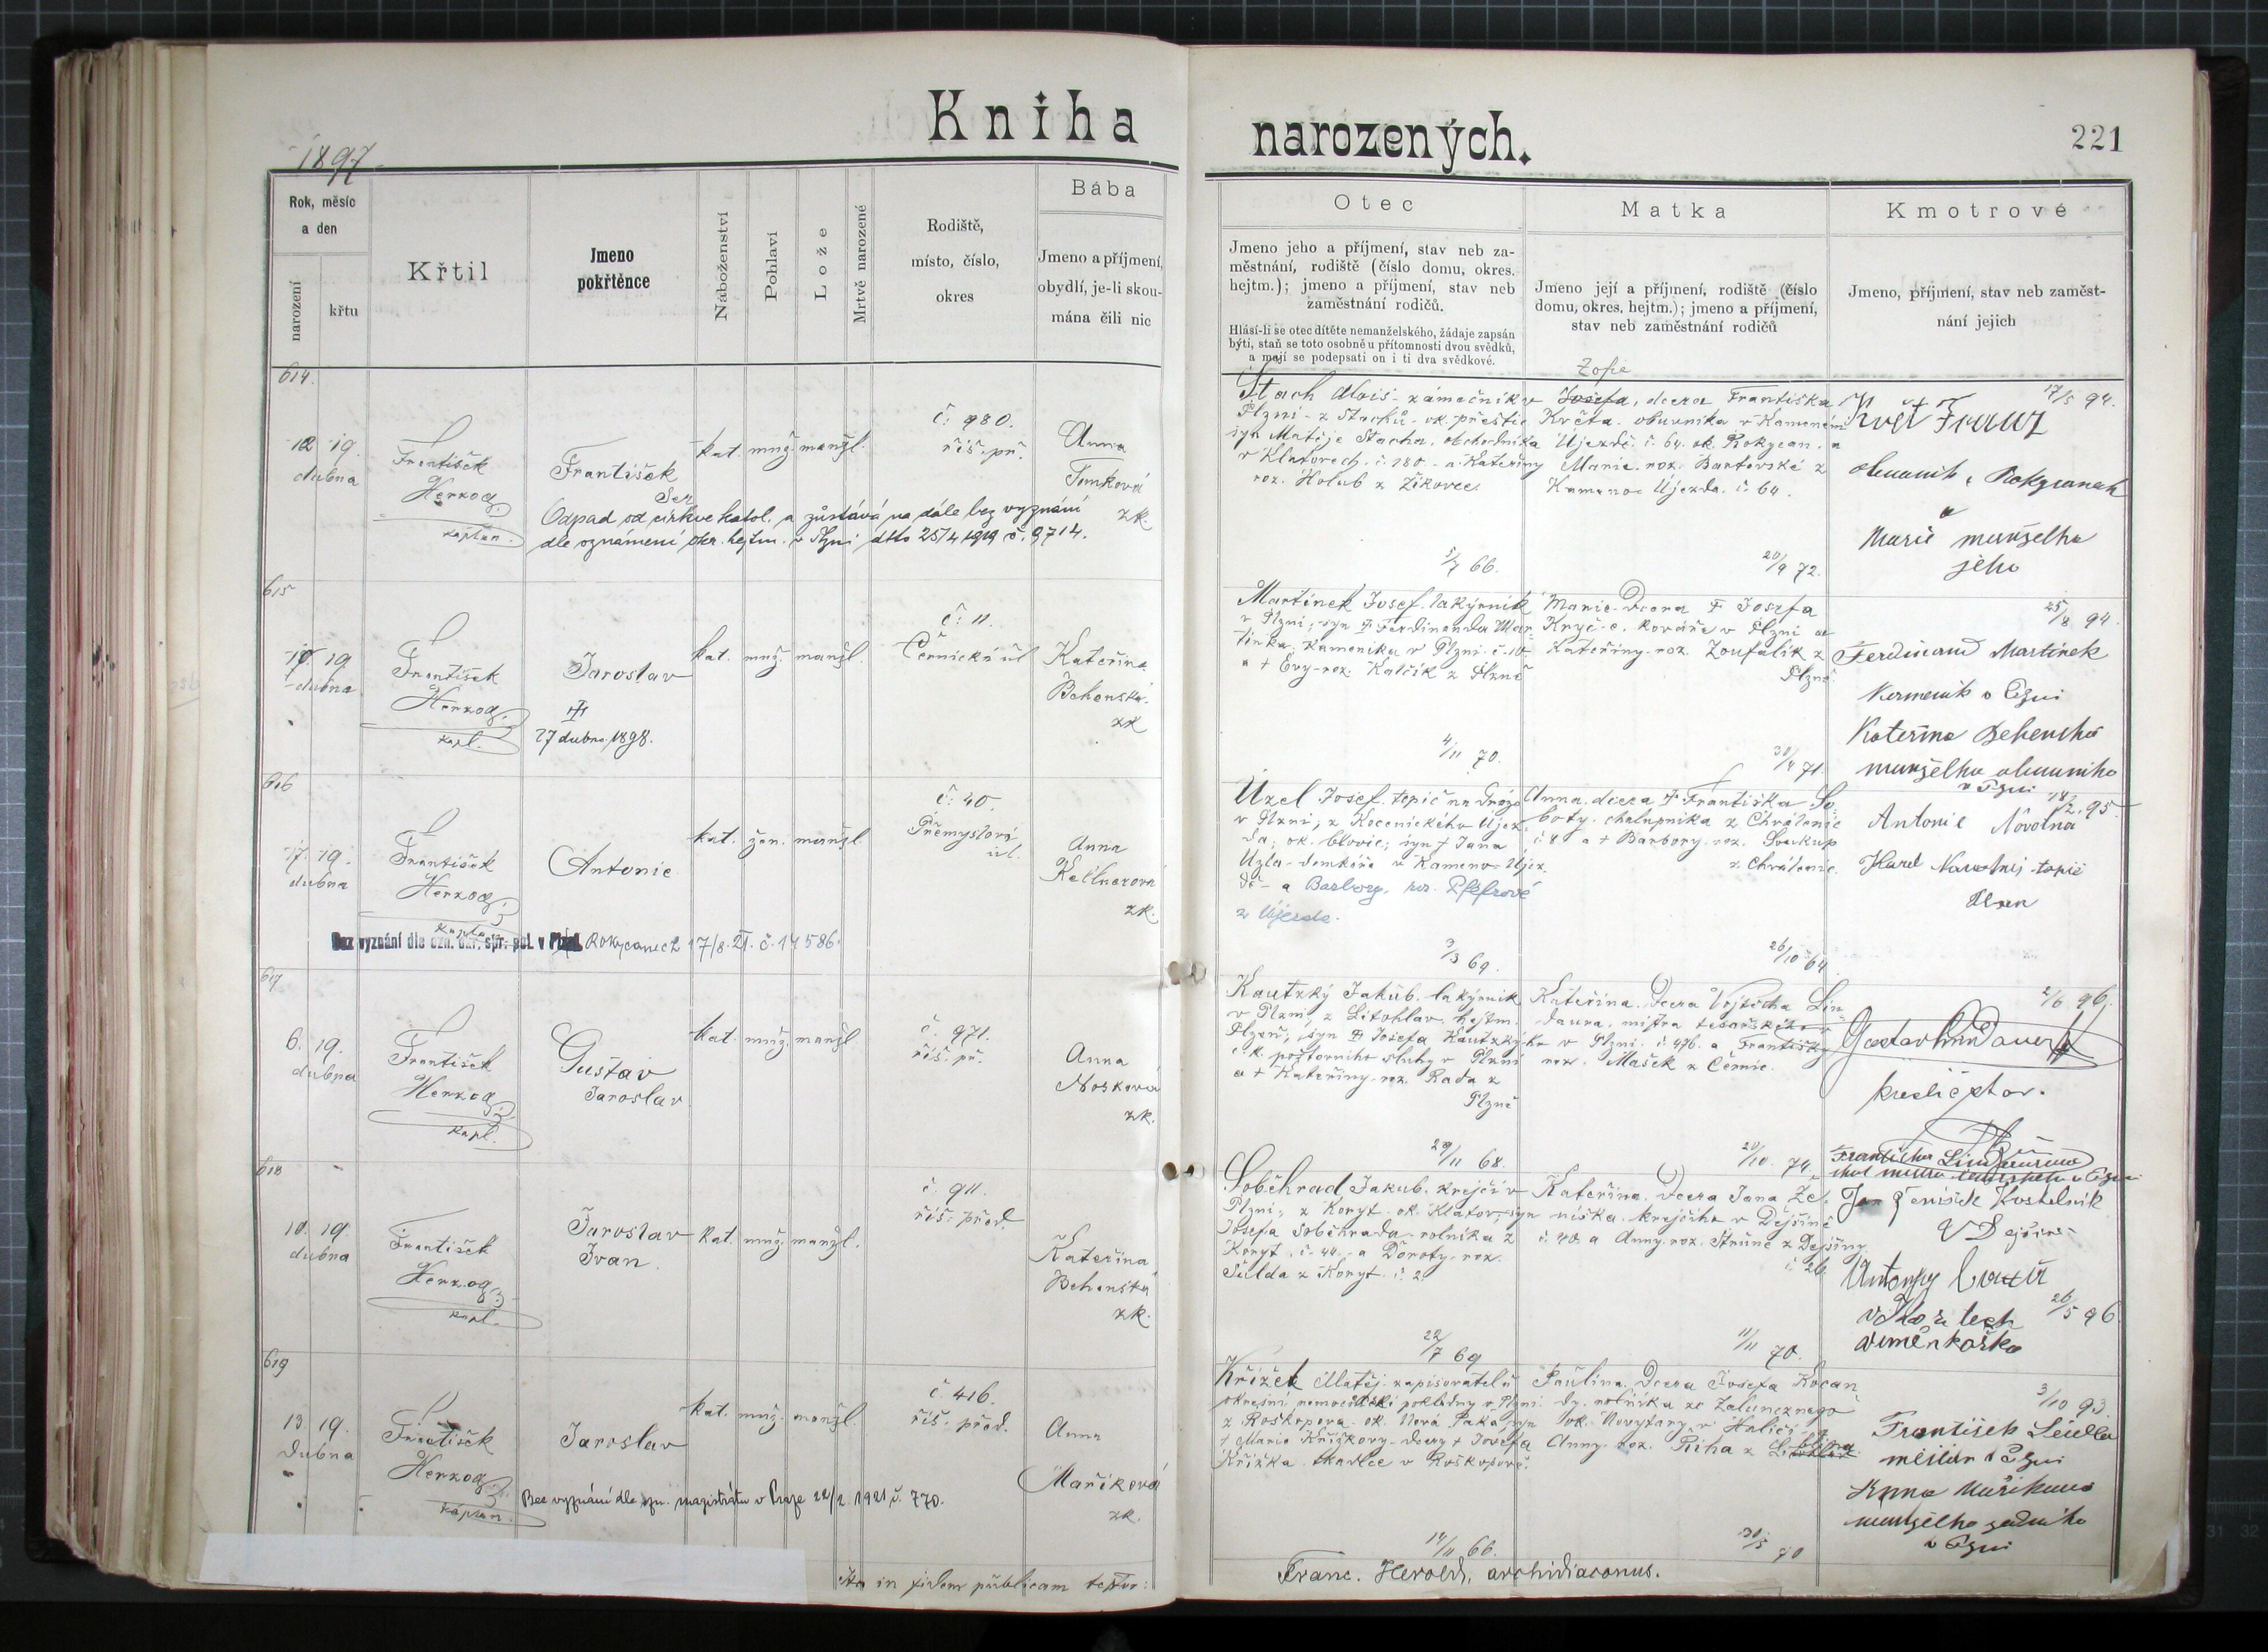 Kniha
narozených.
221
1897
Rok, měsíc
a den
narození
křtu
Křtil
Jmeno
pokřtěnce
Náboženství
Pohlaví
Lože
Mrtvě narozené
Rodiště,
místo, číslo,
okres
Bába
Jmeno a příjmení,
obydlí, je-li skou-
mána čili nic
Otec
Jmeno jeho a příjmení, stav neb za-
městnání, rodiště (číslo domu, okres.
hejtm.); jmeno a příjmení, stav neb
zaměstnání rodičů.
Hlásí-li se otec dítěte nemanželského, žádaje zapsán
býti, staň se toto osobně u přítomnosti dvou svědků,
a mají se podepsati on i ti dva svědkové.
Matka
Jmeno její a příjmení, rodiště (číslo
domu, okres. hejtm.); jmeno a příjmení,
stav neb zaměstnání rodičů
Kmotrové
Jmeno, příjmení, stav neb zaměst-
nání jejich
614.
12 19.
dubna
František
Herzog
kaplan.
František
kat. muž. manžl.
č. 980.
říš. př.
Anna
Tomková
zk.
Odpad od církve katol. a zůstává na dále bez vyznání
dle oznámení okr. hejtm. v Plzni dtto 25/4 1919 č. 9714.
Stach Alois - zámečník v
Plzni - z Stachů - ok. přeštic
syn Matěje Stacha, obchodníka
v Klatovech č. 180 - a Kateřiny
roz. Holub z Žikovec.
5/7 66.
Zofie
Josefa, dcera Františka
Květa, obuvníka v Kamenném
Újezdě č. 64. ok. Rokycan. a
Marie roz. Bartovské z
Kamenno Újezda. č. 64.
20/9 72.
17/5 94.
Květ Franz
obuvník v Rokycanech
a
Marie manželka
jeho
615
19
dubna
František
Herzog
kapl.
Jaroslav
27 dubna 1898.
kat. muž. manžl.
č. 11.
Černická ul
Kateřina
Behenská.
zk
Martínek Josef. lakýrník
v Plzni, syn Ferdinanda Mar-
tínka, kameníka v Plzni č. 10
a + Evy roz. Kalčík z Plzně
4/11 70.
Marie Dcera Josefa
kováře v Plzni a
Kateřiny roz. Zoufalík z
Plzně
30/4 71.
25/8 94.
Ferdinand Martínek
Kamenik v Plzni
Kateřina Behenská
manželka obuvníka
v Plzni
616
17. 19.
dubna
František
Herzog
kaplan
Antonie
kat. žen. manžl.
č. 40.
Přemyslova
ul.
Anna
Kellnerová
zk.
Bez vyznání dle ozn. okr. spr. pol. v Plzni Rokycanech 17/8. 21. č. 14586.
Uzel Josef. topič na dráze
v Plzni, z Kocenického Újez-
da, ok. blovic; syn + Jana
Uzla - domkáře v Kameno-Újez-
dě - a Barbory, roz. Pfefrové
z Újezda.
9/3 69.
Anna dcera Františka So-
boty, chalupníka z Chválenic
č. 8 a + Barbory roz. Soukup
z Chválenic.
26/10 64
18/2. 95
Antonie Novotná
Karel Novotný topič
Plzen
617
6. 19.
dubna
František
Herzog
kapl.
Gustav
Jaroslav
kat. muž. manžl
č. 971.
říš. př.
Anna
Nosková
zk.
Kautzký Jakub. lakýrník
v Plzni, z Litohlav, hejtm.
Plzeň, syn Josefa Kautzky
c. k. poštovního sluhy v Plzni
a + Kateřiny roz. Rada z
Plzně
29/11 68.
Kateřina. Dcera Vojtěcha Lin-
daura, mistra tesařského
v Plzni č. 476. a Františky
roz. Mašek z Černic.
20/10. 74.
2/6 96.
Gustav Lindauer
kresličstav.
618
10. 19.
dubna
František
Herzog
kapl.
Jaroslav
Ivan
kat. muž. manžl.
č. 911.
říš. před.
Kateřina
Behenská
zk.
Soběhrad Jakub. krejčí v
Plzni, z Koryt - ok. Klatov, syn
Josefa Soběhrada - rolníka z
Koryt. č. 44. - a Doroty - roz.
Šulda z Koryt. č. 2
22/7 69
Kateřina. Dcera Jana Že-
níška, krejčího v Dejšině
č. 40. a Anny roz. Strune z Dejšiny
č. 26.
11/11 70.
Jan Ženíšek Kostelník
V Dejšině
26/5 96.
619
13 19.
Dubna
František
Herzog
kaplan.
Jaroslav
kat. muž. manžl.
č. 416.
říš. před.
Anna
Maříková
zk.
Bez vyznání dle ozn. magistrátu v Praze 22/2. 1921 č. 770.
Křížek Matěj zapisovatel u
okresní nemocenské pokladny v Plzni.
z Roškopova - ok. Nová Paka, syn
+ Marie Křížkovy - dcery + Josefa
Křížka tkadlce v Roškopově.
14/11 66.
Paulina. Dcera Josefa Kocan-
dy, rolníka ze Zalucznego
ok. Nowytarg v Haliči - a
Anny roz. Říha z
30/5 70
3/10 93.
František Seidler
v Plzni
Anna Maříková
manželka
v Plzni
Ita in fidem publicam testor:
Franc. Herold, archidiaconus.